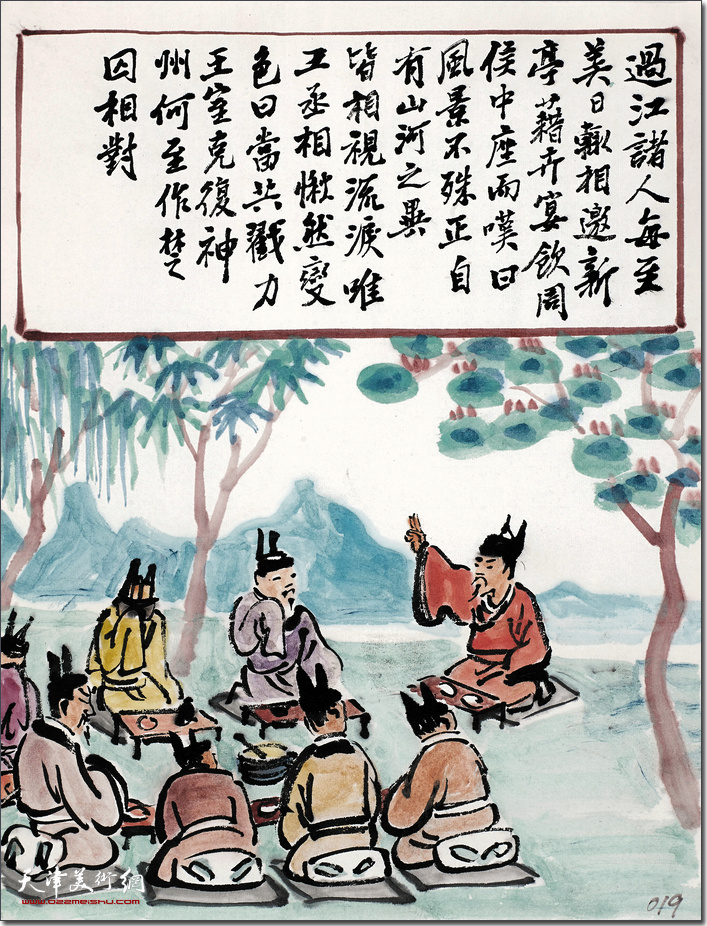 過江諸人每至
美日輒相邀新
亭藉卉宴飲周
侯中座而嘆曰
風景不殊正自
有山河之異
皆相視流淚唯
王丞相愀然變
色曰當共戮力
王室克復神
州何至作楚
囚相對
天津美術網
www.022meishu.com
019